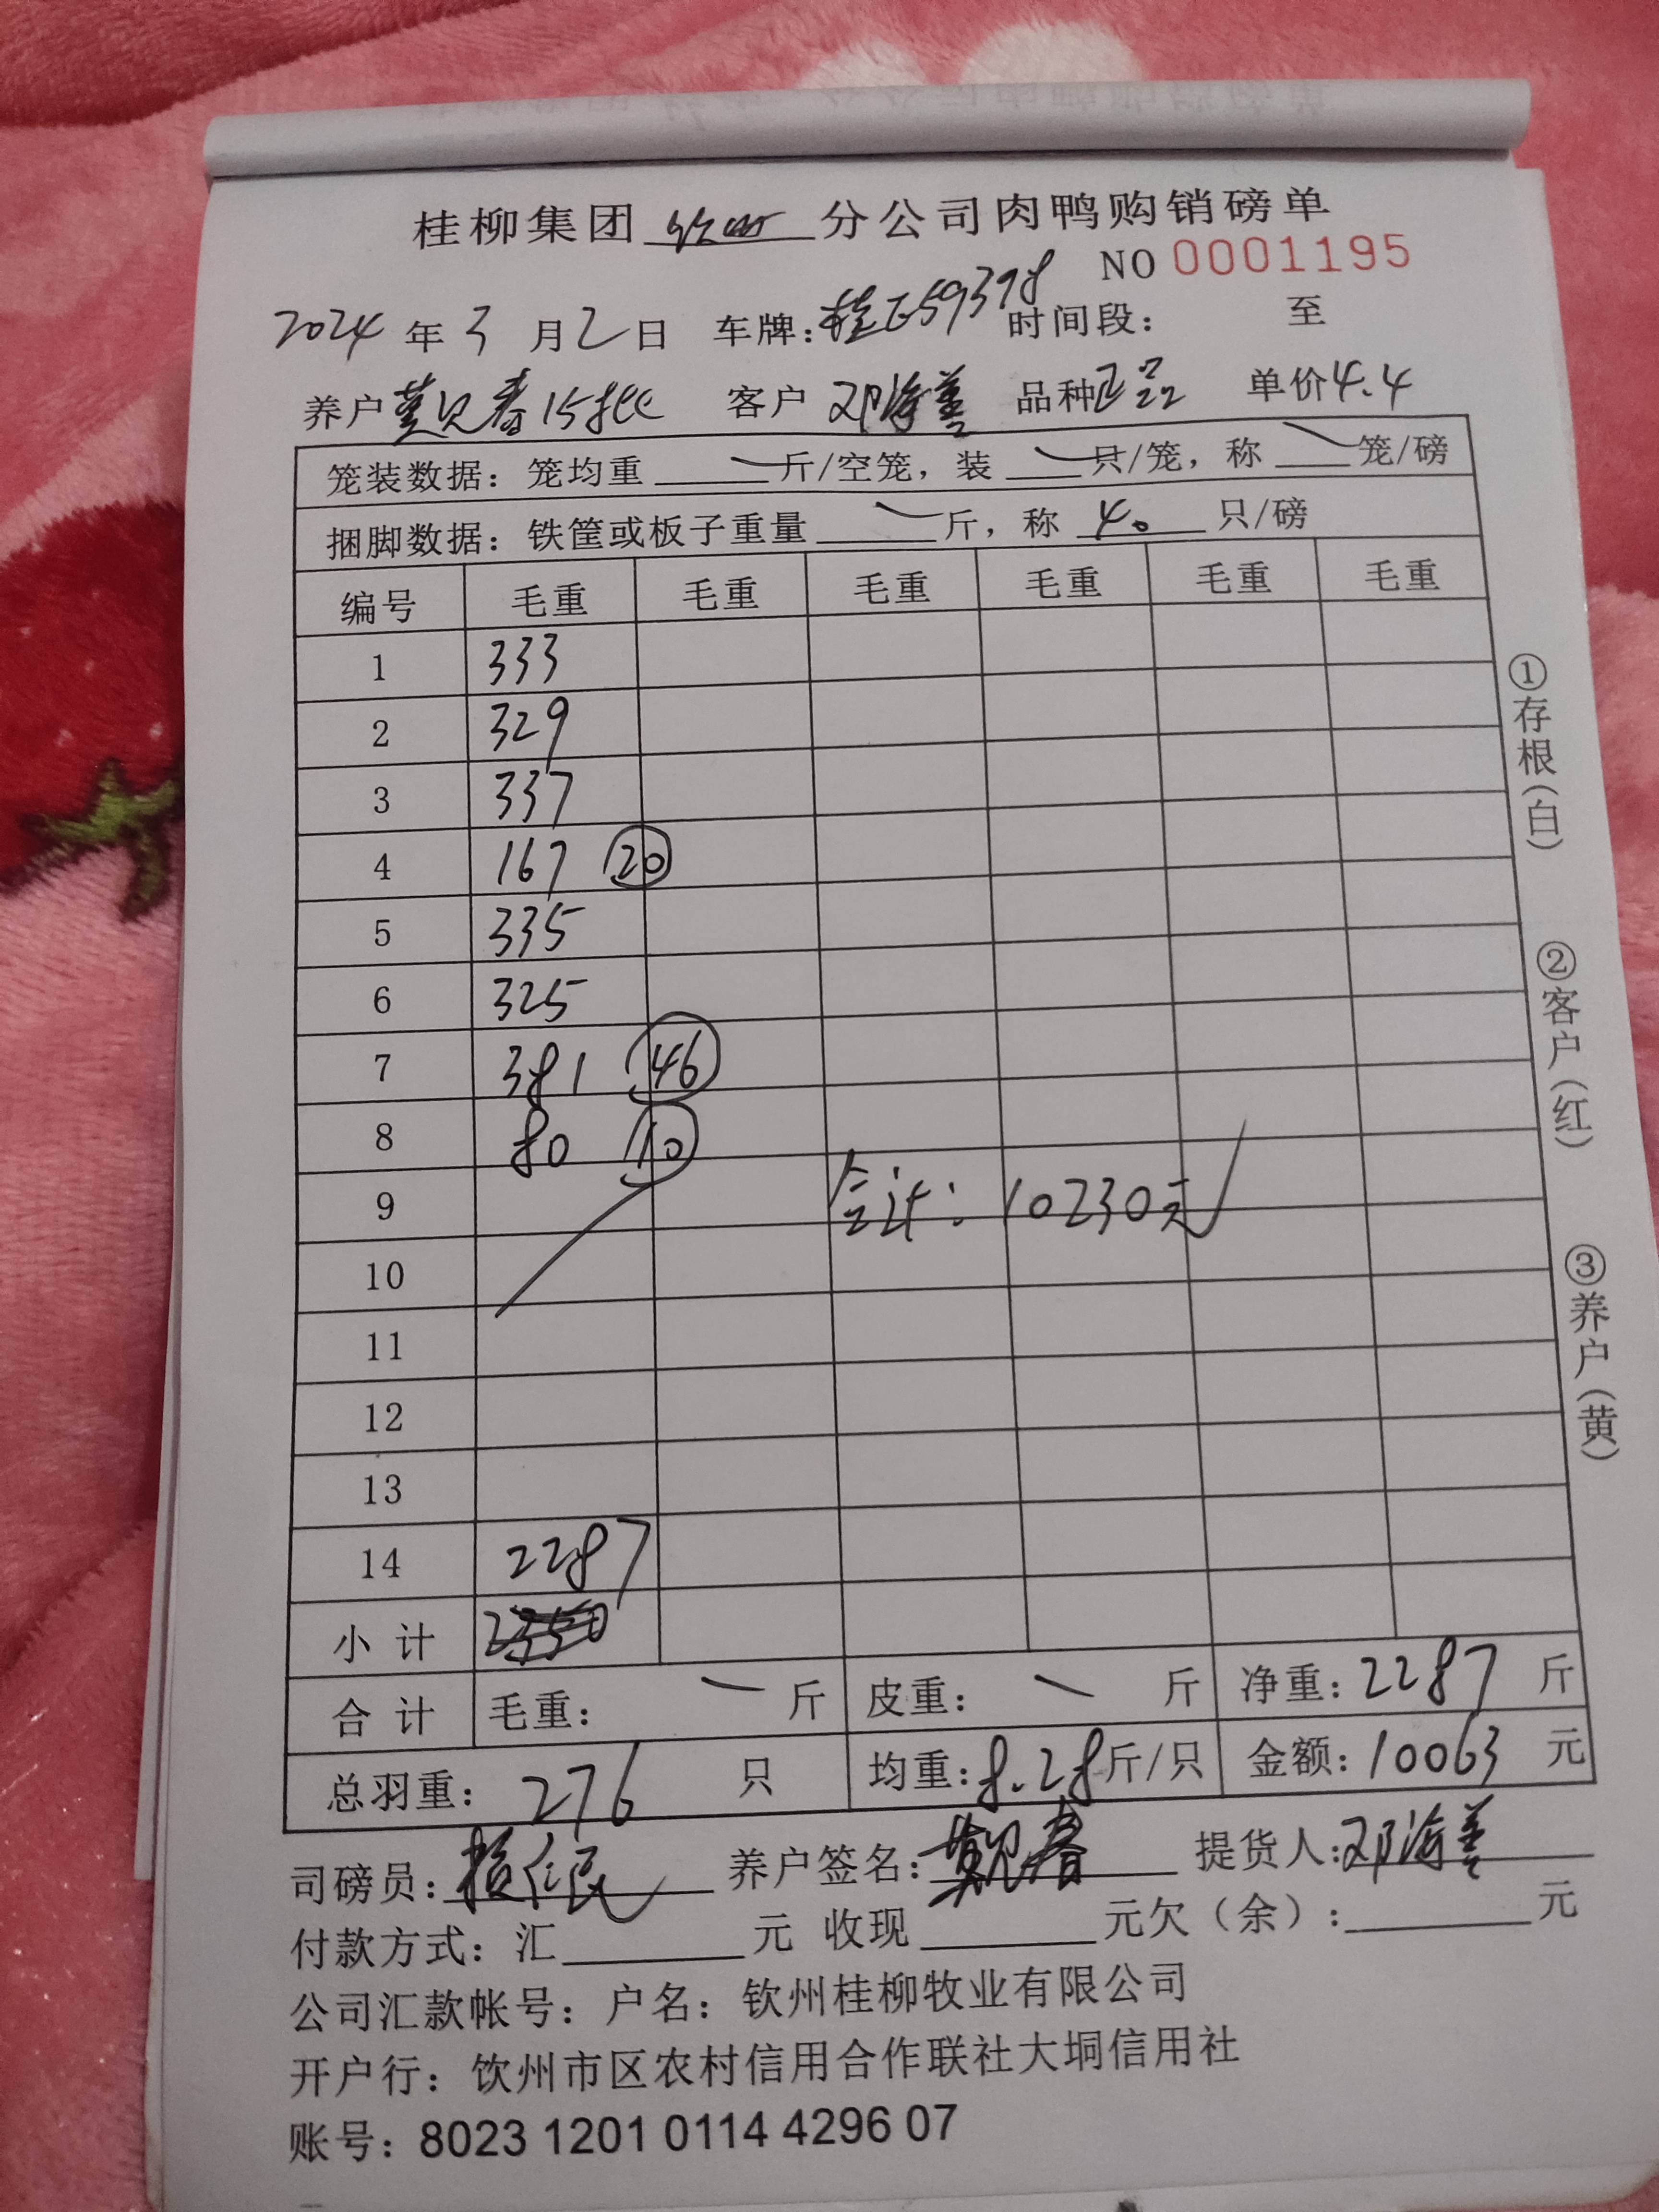 桂柳集团 钦州 分公司肉鸭购销磅单
NO 0001195
2024 年 3 月 2 日 车牌：桂E59398 时间段： 至
养户 莫见春 15批 客户 邓海善 品种 正品 单价 4.4
笼装数据：笼均重 斤/空笼，装 只/笼，称 笼/磅
捆脚数据：铁筐或板子重量 斤，称 40 只/磅
编号 毛重 毛重 毛重 毛重 毛重 毛重
1 333
2 329
3 337
4 167 20
5 335
6 325
7 381 46
8 80 10
9 合计：10230元
10
11
12
13
14 2287
小 计
合 计 毛重： 斤 皮重： 斤 净重：2287 斤
总羽重：276 只 均重：8.28 斤/只 金额：10063 元
司磅员： 养户签名：莫见春 提货人：邓海善
付款方式：汇 元 收现 元欠（余）： 元
公司汇款帐号：户名：钦州桂柳牧业有限公司
开户行：钦州市区农村信用合作联社大垌信用社
账号：8023 1201 0114 4296 07
①存根（白）
②客户（红）
③养户（黄）